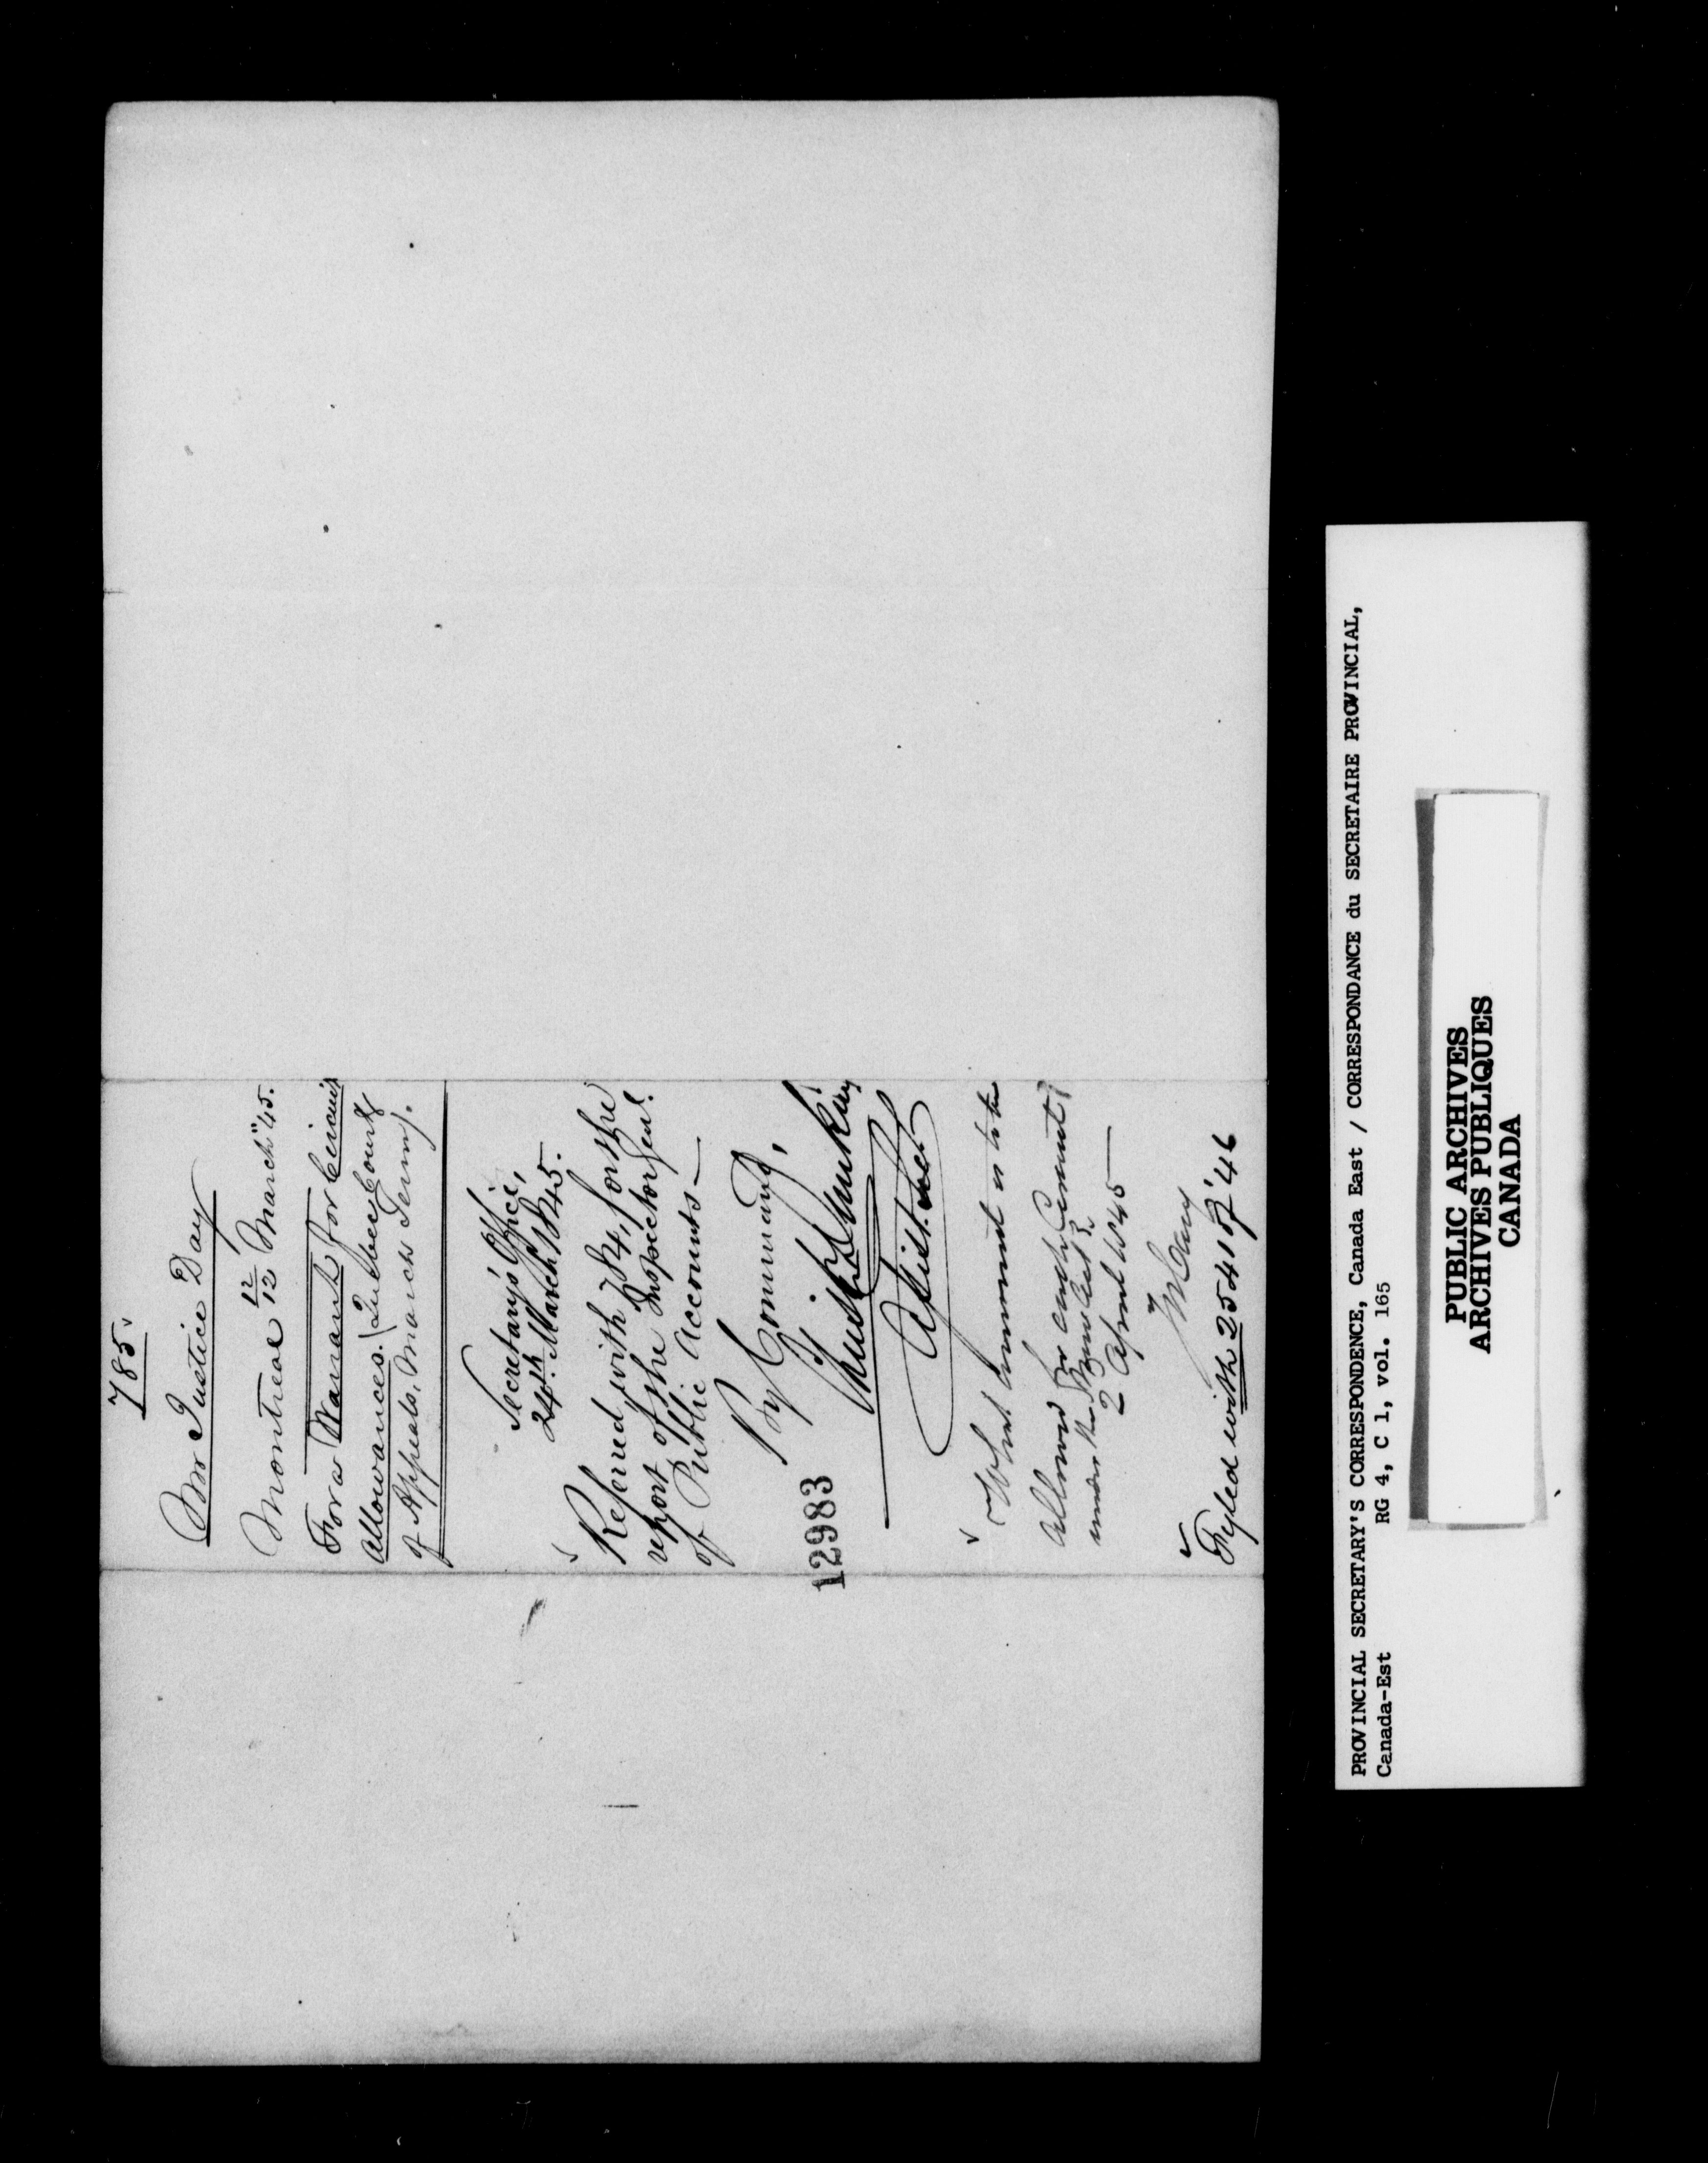 785.
Mr Justice Day
Montreal 12 March "45.
For a Warrant for Circuit
Allowances. (Quebec Court
of Appeals, March Term).
Secretary's Office,
24th March 1845.
Referred with 784, for the
report of the Inspector Genl.
of Public Accounts—
By Command,
Asst. Sec
12983
What amount is to be
allowed for each Circuit
under the
2 April 1845
Fyled with 2541 of '46
PROVINCIAL SECRETARY'S CORRESPONDENCE, Canada East / CORRESPONDANCE du SECRETAIRE PROVINCIAL,
Canada-Est RG 4, C 1, vol. 165
PUBLIC ARCHIVES
ARCHIVES PUBLIQUES
CANADA